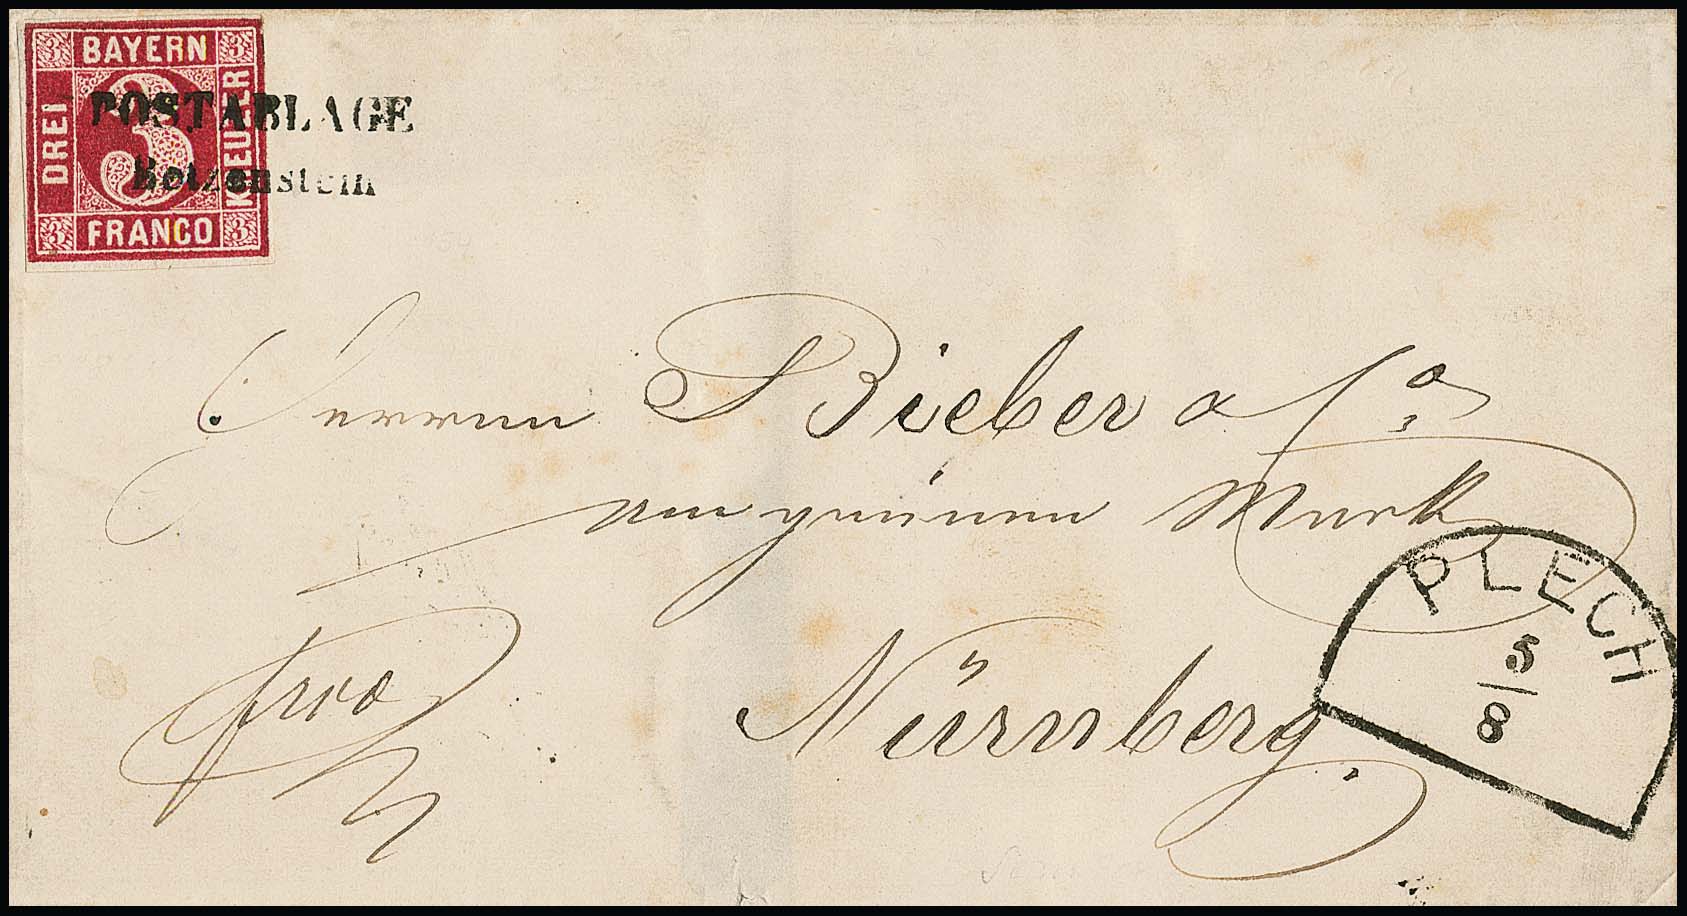 3 BAYERN 3
DREI 3 KREUZER
3 FRANCO 3
POSTABLAGE
Betzenstein
Herrn S Bieber & Co
am grünen Markt
frco
Nürnberg.
PLECH
5
8